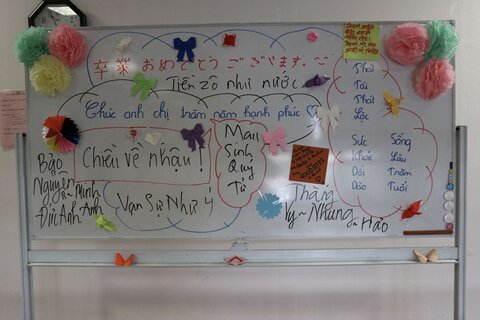 卒業おめでとうございます。
Tiền zô như nước
Chúc anh chị trăm năm hạnh phúc
Chiều về nhậu!
Mau
Sinh
Quý
Tử
Phát
Tài
Phát
Lộc
Sức
Khỏe
Dồi
Dào
Sống
Lâu
Trăm
Tuổi
Bảo
Nguyên Minh
Đức Anh Anh
Vạn Sự Như Ý
Thắng
Vy ~ Nhung ~ Hảo